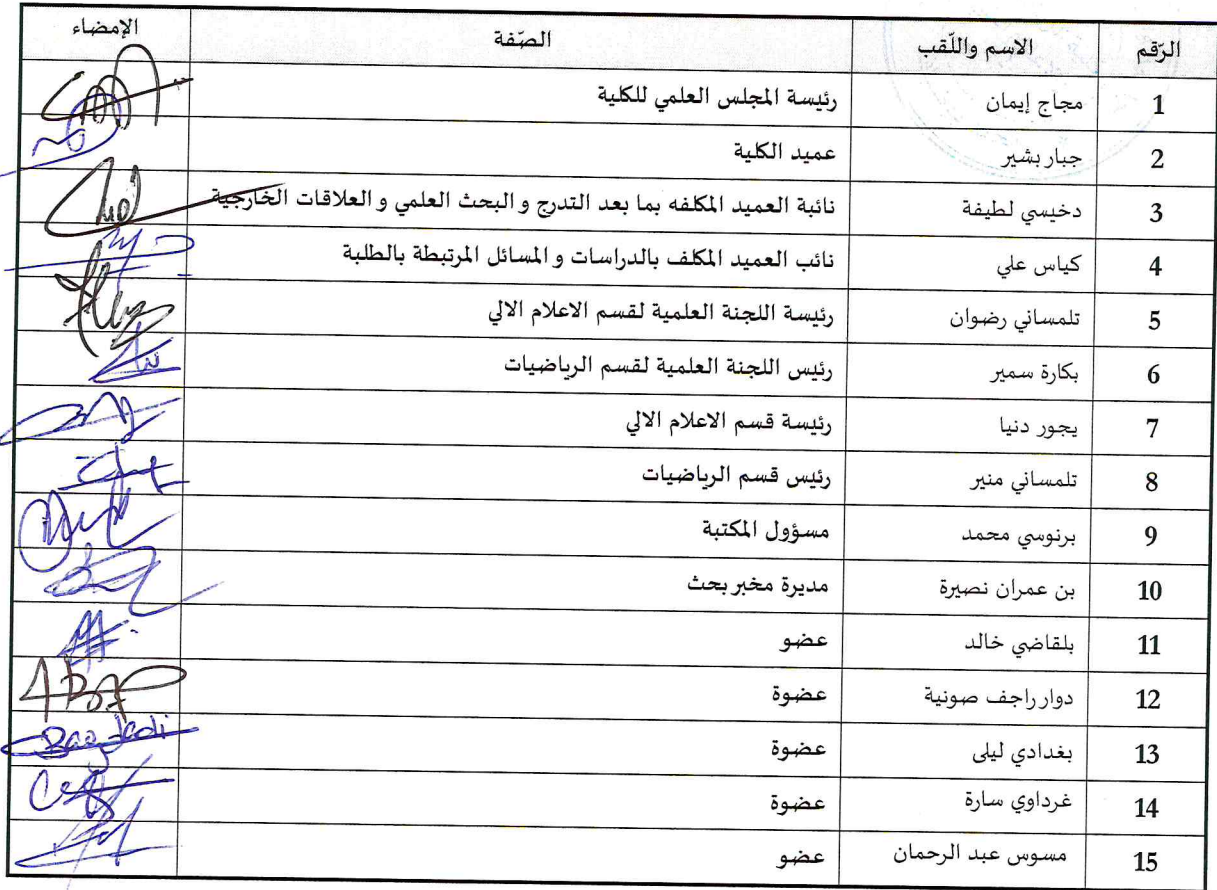 الرّقم الاسم واللّقب الصّفة الإمضاء
1 مجاج إيمان رئيسة المجلس العلمي للكلية
2 جبار بشير عميد الكلية
3 دخيسي لطيفة نائبة العميد المكلفه بما بعد التدرج و البحث العلمي و العلاقات الخارجية
4 كياس علي نائب العميد المكلف بالدراسات و المسائل المرتبطة بالطلبة
5 تلمساني رضوان رئيسة اللجنة العلمية لقسم الاعلام الالي
6 بكارة سمير رئيس اللجنة العلمية لقسم الرياضيات
7 يجور دنيا رئيسة قسم الاعلام الالي
8 تلمساني منير رئيس قسم الرياضيات
9 برنوسي محمد مسؤول المكتبة
10 بن عمران نصيرة مديرة مخبر بحث
11 بلقاضي خالد عضو
12 دوار راجف صونية عضوة
13 بغدادي ليلى عضوة Bagdadi
14 غرداوي سارة عضوة
15 مسوس عبد الرحمان عضو